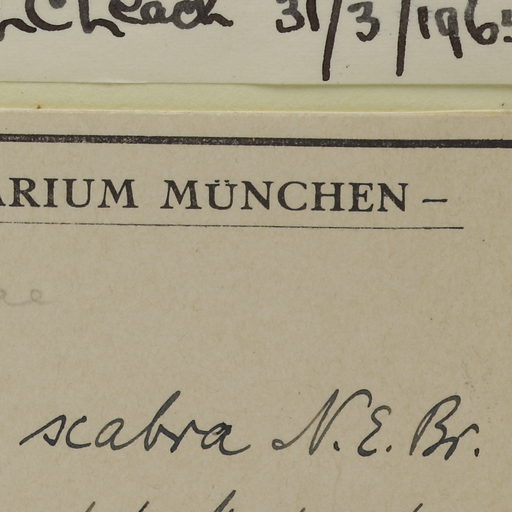 Leach 31/3/1965
ARIUM MÜNCHEN –
ae
scabra N.E.Br.